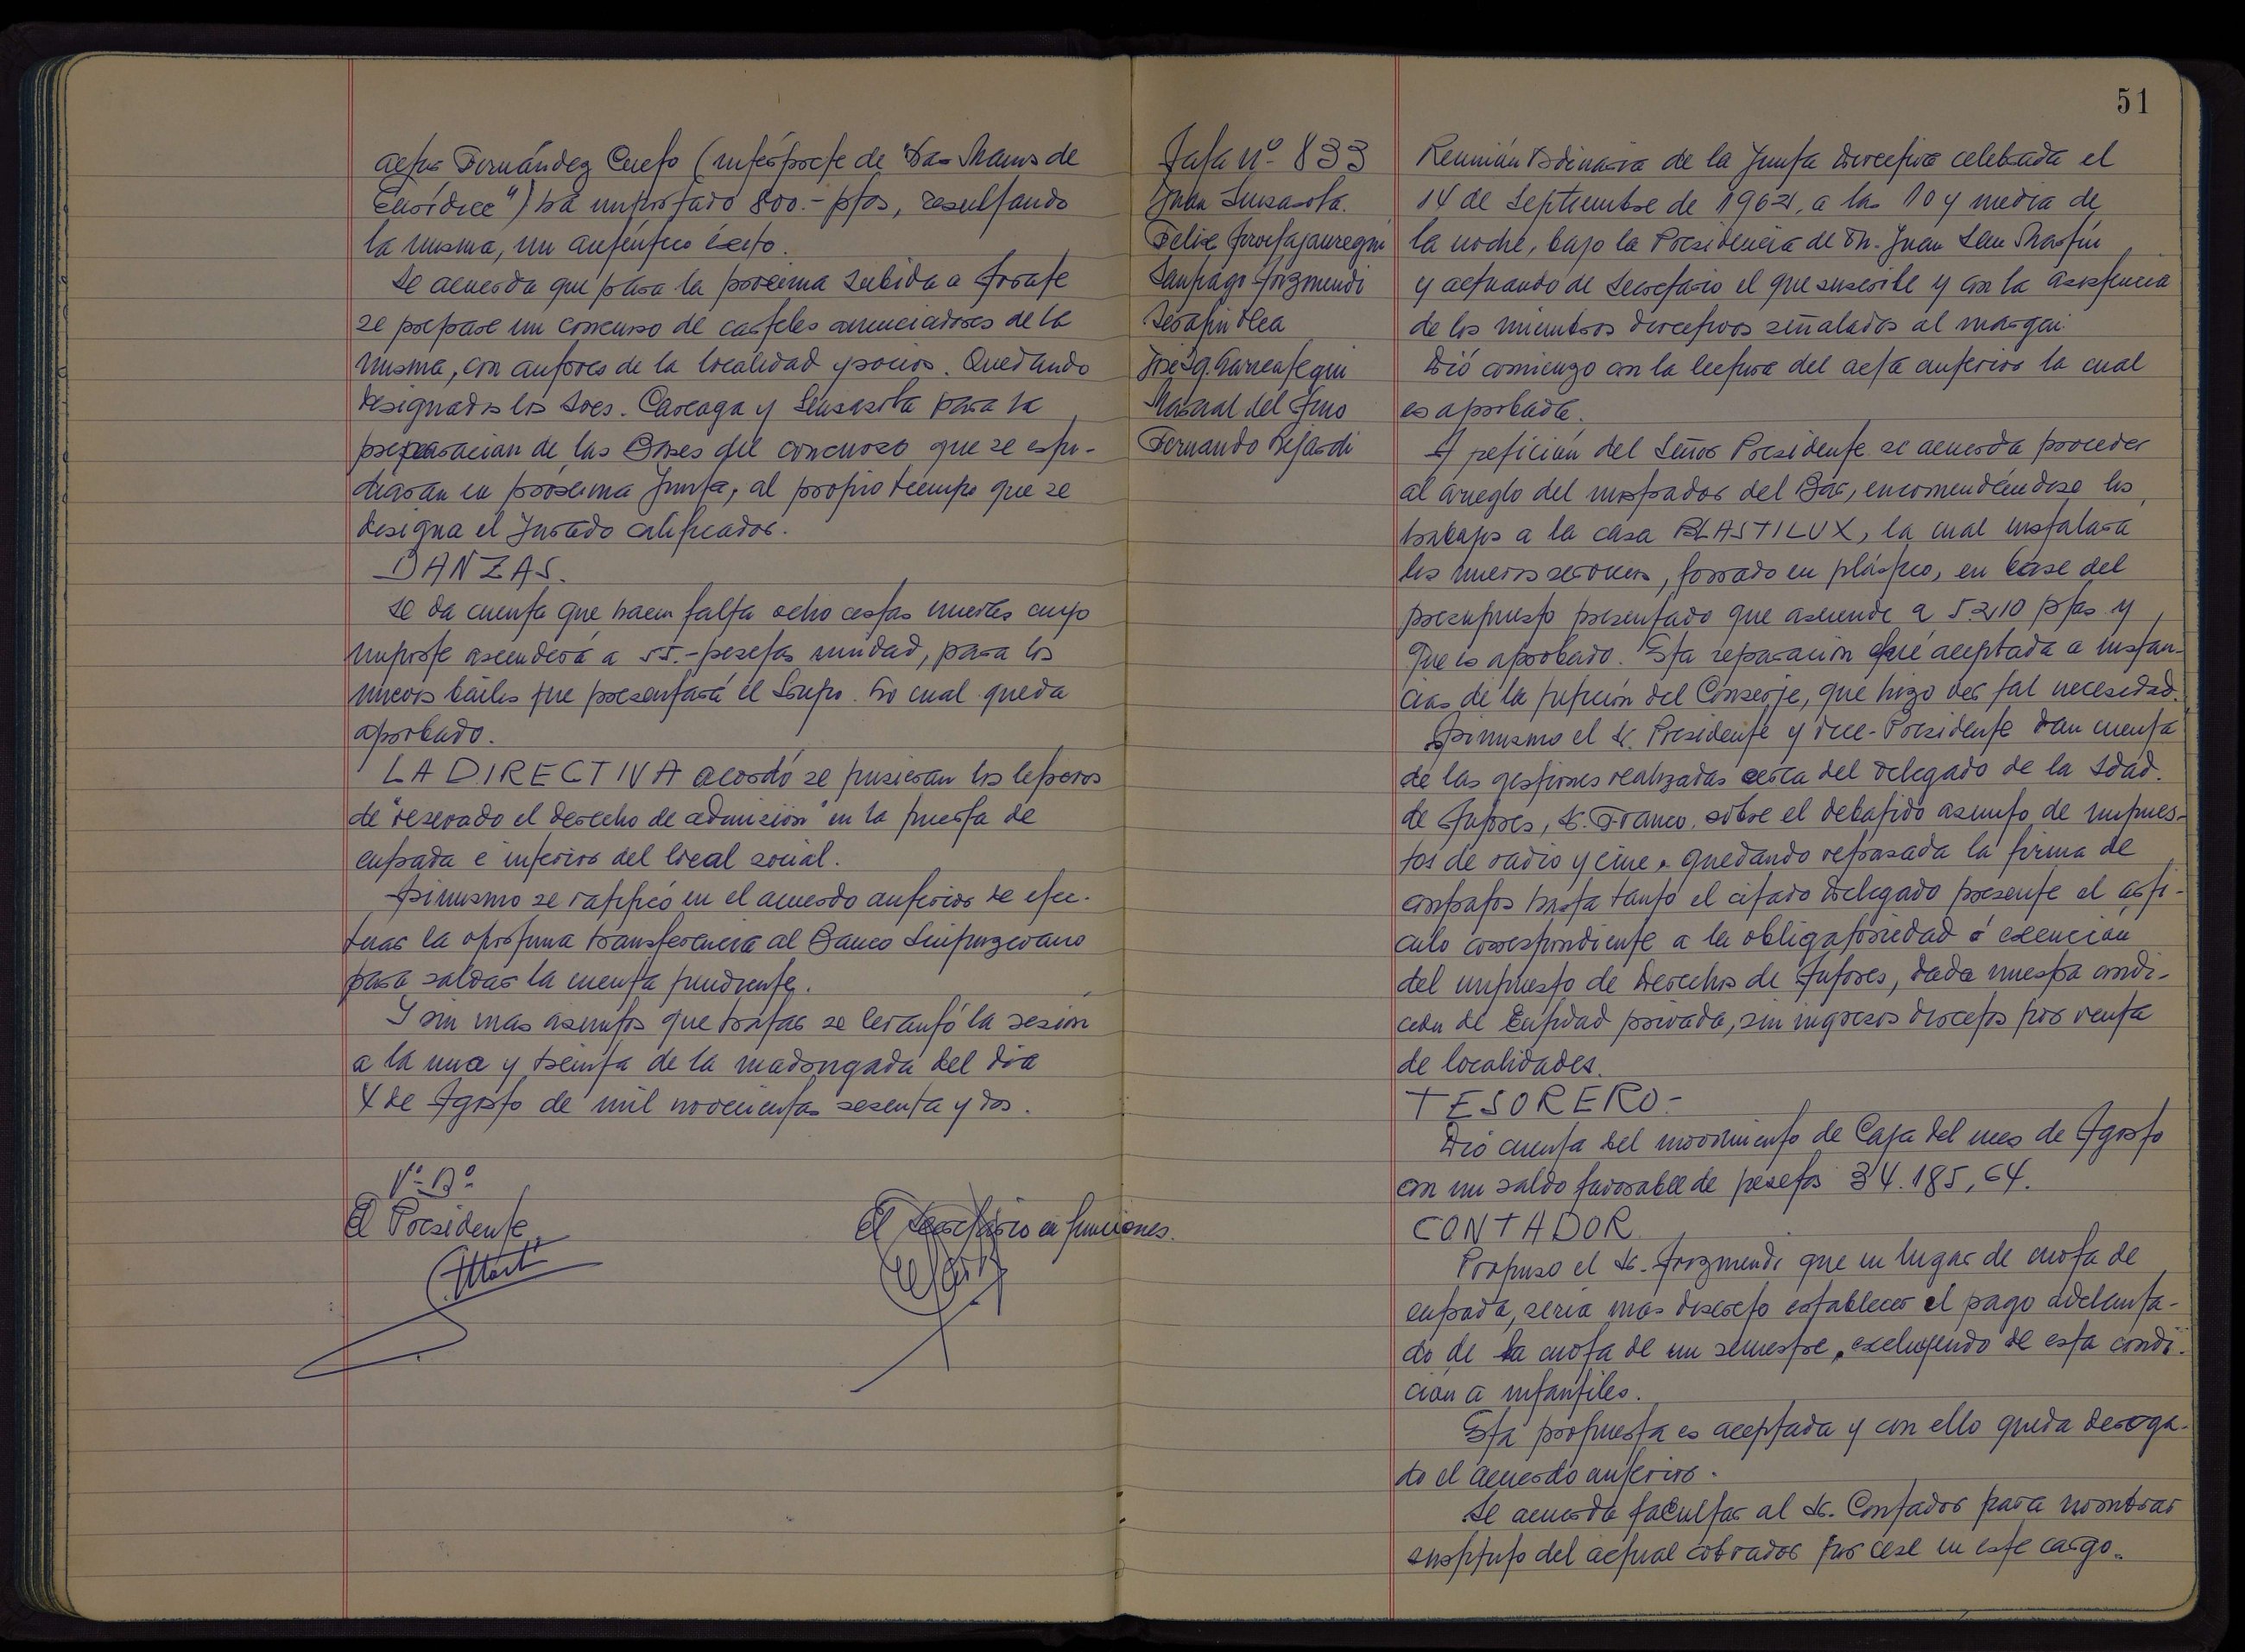 actor Fernández Cuesto (intérprete de "Las Manos de
Eurídice") ha importado 800.- ptas, resultando
la misma, un auténtico éxito.
Se acuerda que para la proxima subida a Arrate
se prepare un concurso de carteles anunciadores de la
misma, con autores de la localidad y socios. Quedando
designados los Sres. Careaga y Sarasola para la
preparacion de las Bases del concurso que se estu-
diarán en próxima Junta, al propio tiempo que se
designa el Jurado calificador.
DANZAS.
Se da cuenta que hacen falta ocho cestas nuevas cuyo
importe ascenderá a 55.- pesetas unidad, para los
nuevos bailes que presentará el Grupo. Lo cual queda
aprobado.
LA DIRECTIVA acordó se pusieran los letreros
de "reservado el derecho de admision" en la puerta de
entrada e interior del local social.
Asimismo se ratificó en el acuerdo anterior de efec-
tuar la oportuna transferencia al Banco Guipuzcoano
para saldar la cuenta pendiente.
Y sin mas asuntos que tratar se levantó la sesion
a la una y treinta de la madrugada del dia
4 de Agosto de mil novecientos sesenta y dos.
Vº Bº
El Presidente
El Secretario en funciones.
51
Junta nº 833
Juan
Felix Arreitajauregui
Santiago Arizmendi
Serafin Olea
José Ig.
del Amo
Fernando
Reunión Ordinaria de la Junta Directiva celebrada el
14 de Septiembre de 1962, a las 10 y media de
la noche, bajo la Presidencia de Dn. Juan San Martín
y actuando de Secretario el que suscribe y con la asistencia
de los miembros directivos señalados al margen.
Dió comienzo con la lectura del acta anterior la cual
es aprobada.
A petición del Señor Presidente se acuerda proceder
al arreglo del mostrador del Bar, encomendándose los
trabajos a la casa PLASTILUX, la cual instalara
los nuevos servicios, forrado en plástico, en base del
presupuesto presentado que asciende a 5.210 ptas y
que es aprobado. Esta reparacion fué aceptada a instan-
cias de la petición del Conserje, que hizo ver tal necesidad.
Asimismo el Sr. Presidente y Vice-Presidente dan cuenta
de las gestiones realizadas cerca del delegado de la Sdad.
de Autores, Sr. Franco, sobre el debatido asunto de impues-
tos de radio y cine, quedando retrasada la firma de
contratos hasta tanto el citado Delegado presente el arti-
culo correspondiente a la obligatoriedad ó exencion
del impuesto de Derechos de Autores, dada nuestra condi-
cion de Entidad privada, sin ingresos directos por venta
de localidades.
TESORERO-
Dió cuenta del movimiento de Caja del mes de Agosto
con un saldo favorable de pesetas 34.185,64.
CONTADOR
Propuso el Sr. Arizmendi que en lugar de cuota de
entrada, seria mas discreto establecer el pago adelanta-
do de la cuota de un semestre, excluyendo de esta condi-
cion a infantiles.
Esta propuesta es aceptada y con ello queda deroga-
do el acuerdo anterior.
Se acuerda facultar al Sr. Contador para nombrar
sustituto del actual cobrador por cese en este cargo.